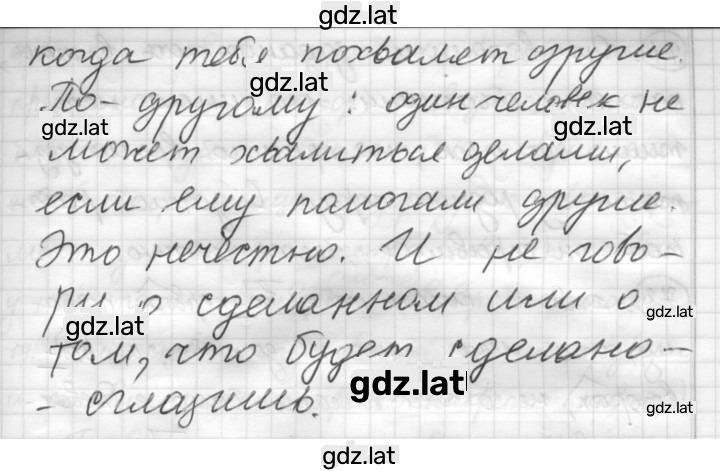 gdz.lat
когда тебя похвалят другие.
gdz.lat
По-другому: один человек не
gdz.lat gdz.lat
может хвалиться делами,
если ему помогали другие.
Это нечестно. И не гово-
ри о сделанном или о
gdz.lat gdz.lat
том, что будет сделано-
gdz.lat gdz.lat
- сглазишь.
gdz.lat